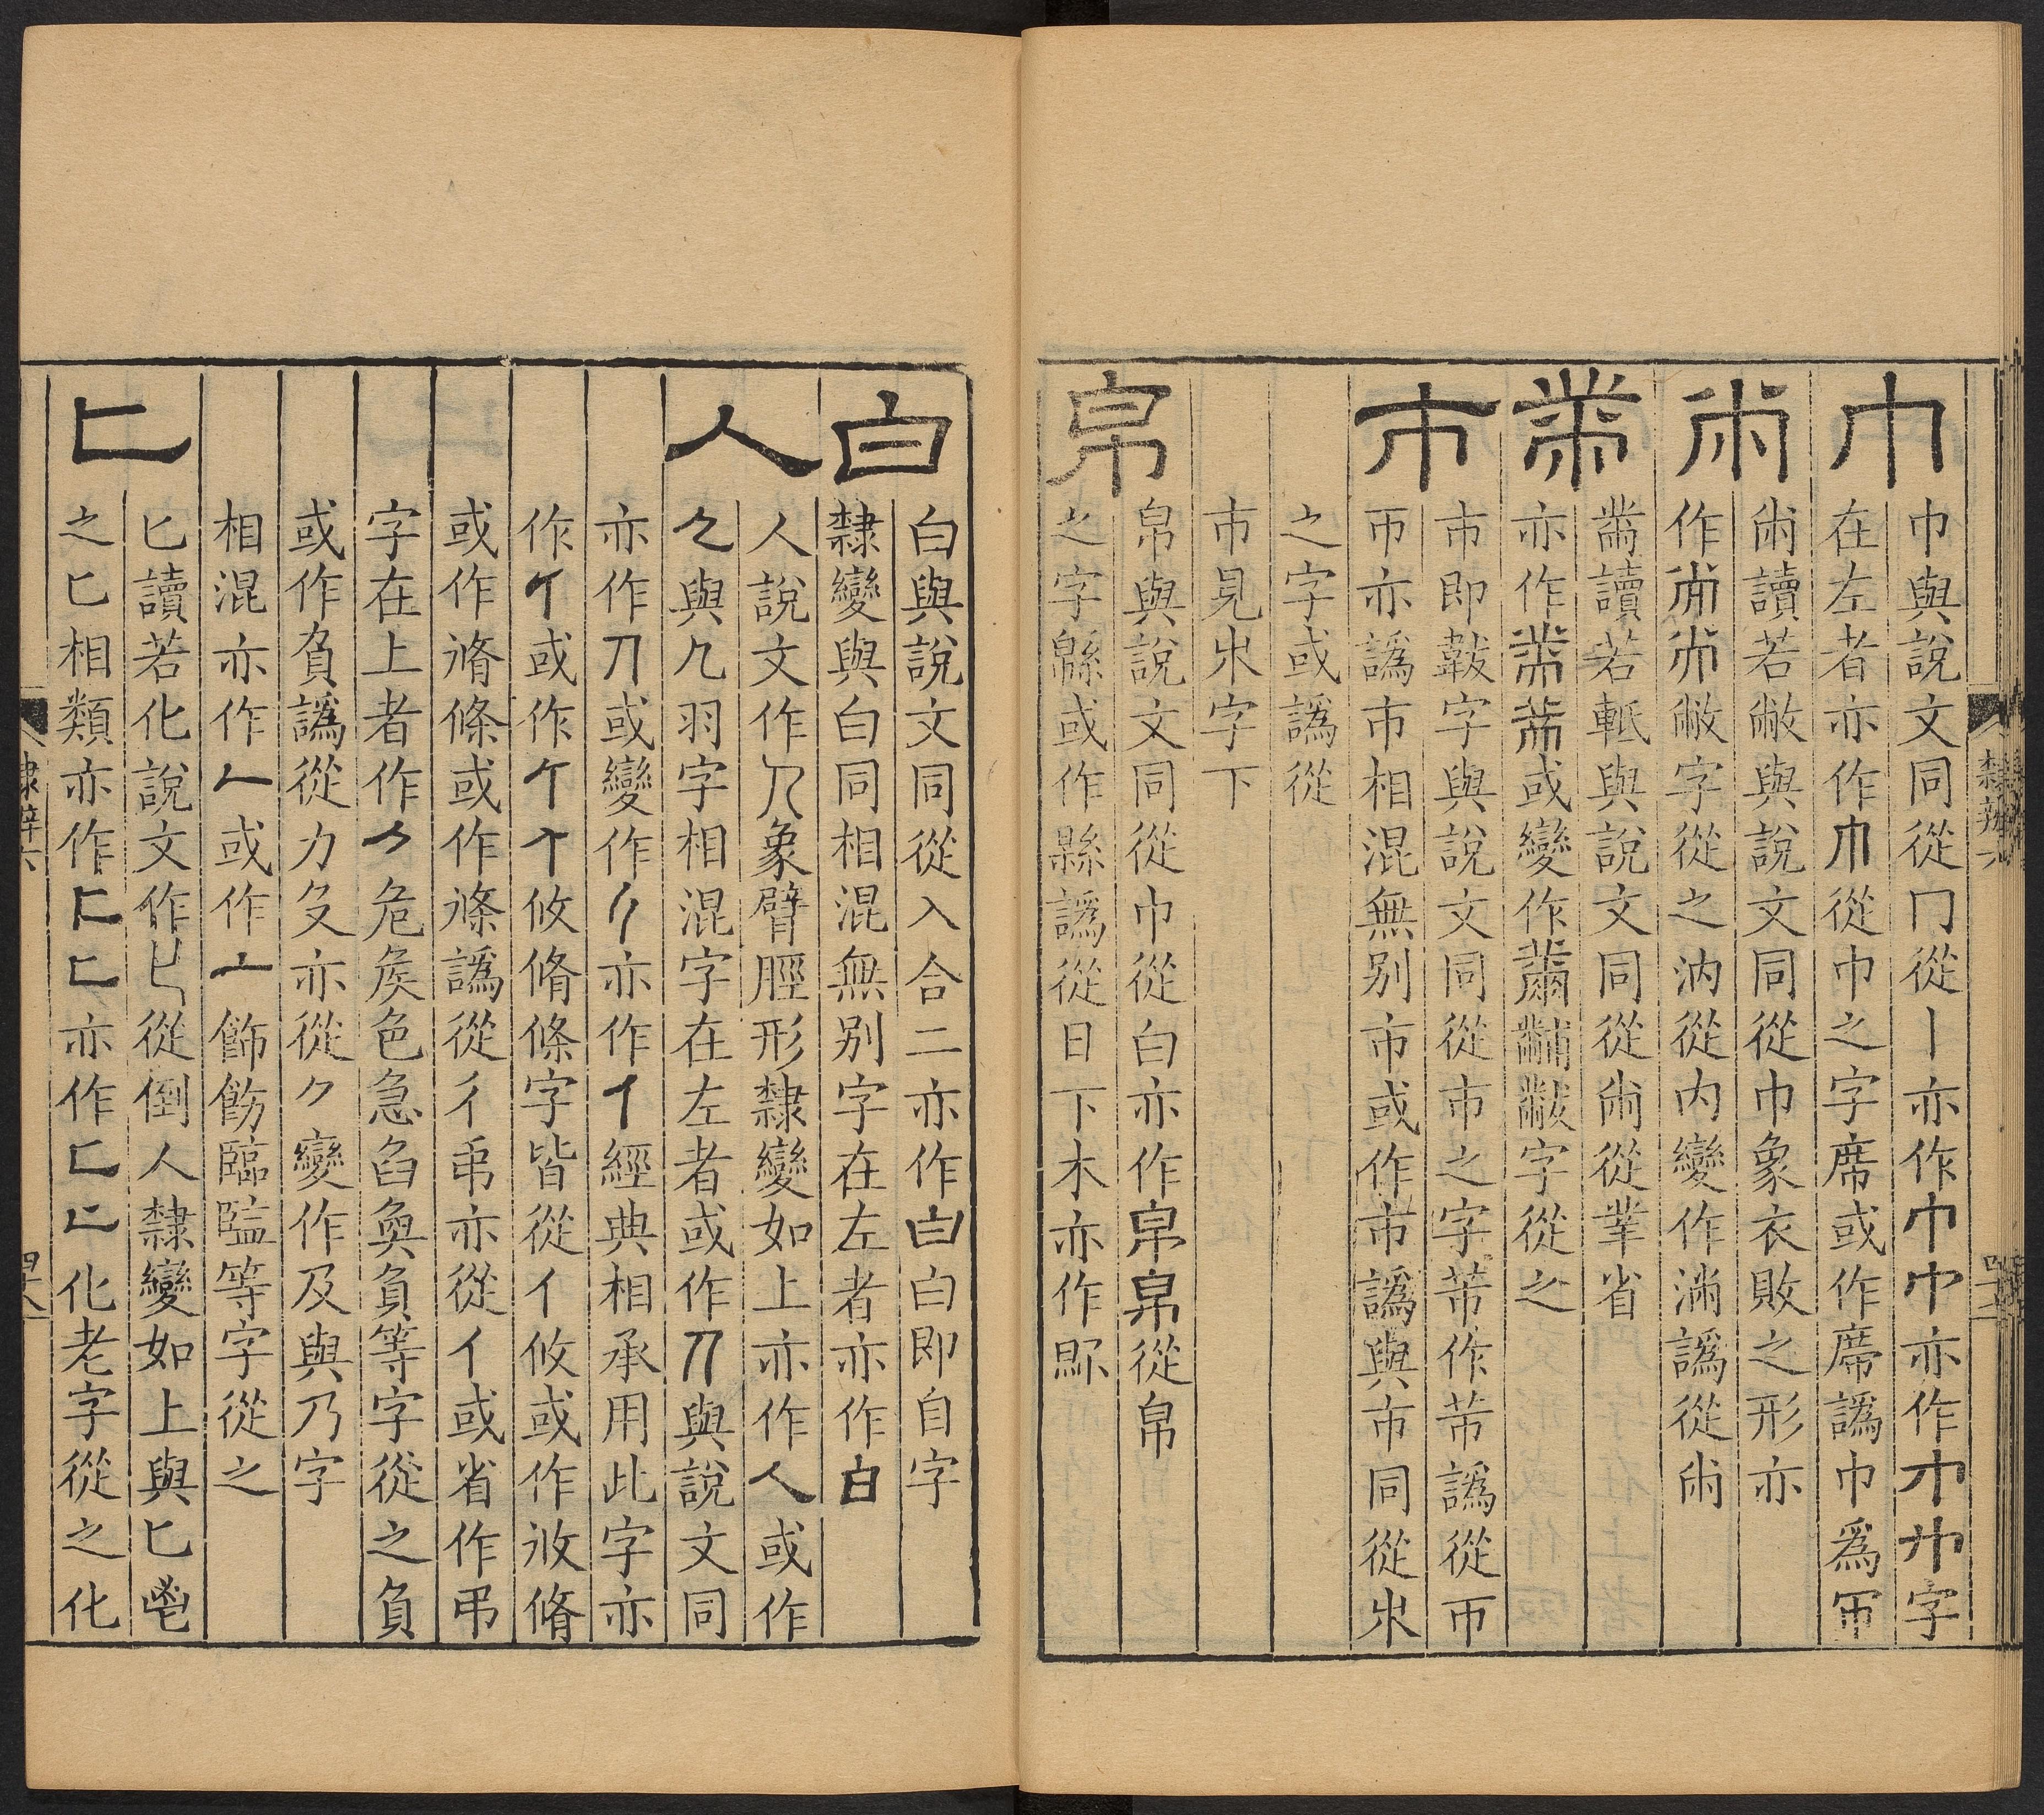 巾
巾與說文同從冂從丨亦作巾巾亦作字
在左者亦作從巾之字席或作席譌巾爲
㡀
㡀讀若敝與說文同從巾象衣敗之形亦
作敝字從之汭從內變作譌從㡀
黹
黹讀若軧與說文同從㡀從丵省
亦作或變作黼黻字從之
巿
巿即韍字與說文同從巿之字芾作芾譌從帀
帀亦譌巿相混無別市或作市譌與巿同從𣎵
之字或譌從
巿見𣎵字下
帛
帛與說文同從巾從白亦作帛帛從帛
之字緜或作緜譌從日下木亦作
白
白與說文同從入合二亦作白白即自字
隸變與白同相混無別字在左者亦作白
人
人說文作象臂脛形隸變如上亦作人或作
與几羽字相混字在左者或作與說文同
亦作刀或變作亦作亻經典相承用此字亦
作亻或作攸脩條字皆從亻攸或作攸脩
或作脩條或作條譌從彳弔亦從亻或省作弔
字在上者作危矦色急臽奐負等字從之負
或作負譌從力夂亦從⺈變作及與乃字
相混亦作𠂉或作亠飾飭臨監等字從之
匕
匕讀若化說文作從倒人隸變如上與匕鬯
之匕相類亦作亦作化老字從之化
隸辨六